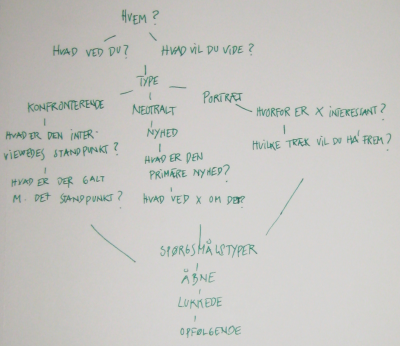 HVEM?
HVAD VED DU? HVAD VIL DU VIDE?
TYPE
KONFRONTERENDE NEUTRALT PORTRÆT
HVORFOR ER X INTERESSANT?
HVILKE TRÆK VIL DU HA FREM?
HVAD ER DEN INTER-
VIEWEDES STANDPUNKT?
HVAD ER DER GALT
M. DET STANDPUNKT?
NYHED
HVAD ER DEN
PRIMÆRE NYHED?
HVAD VED X OM DET?
SPØRGSMÅLSTYPER
ÅBNE
LUKKEDE
OPFØLGENDE